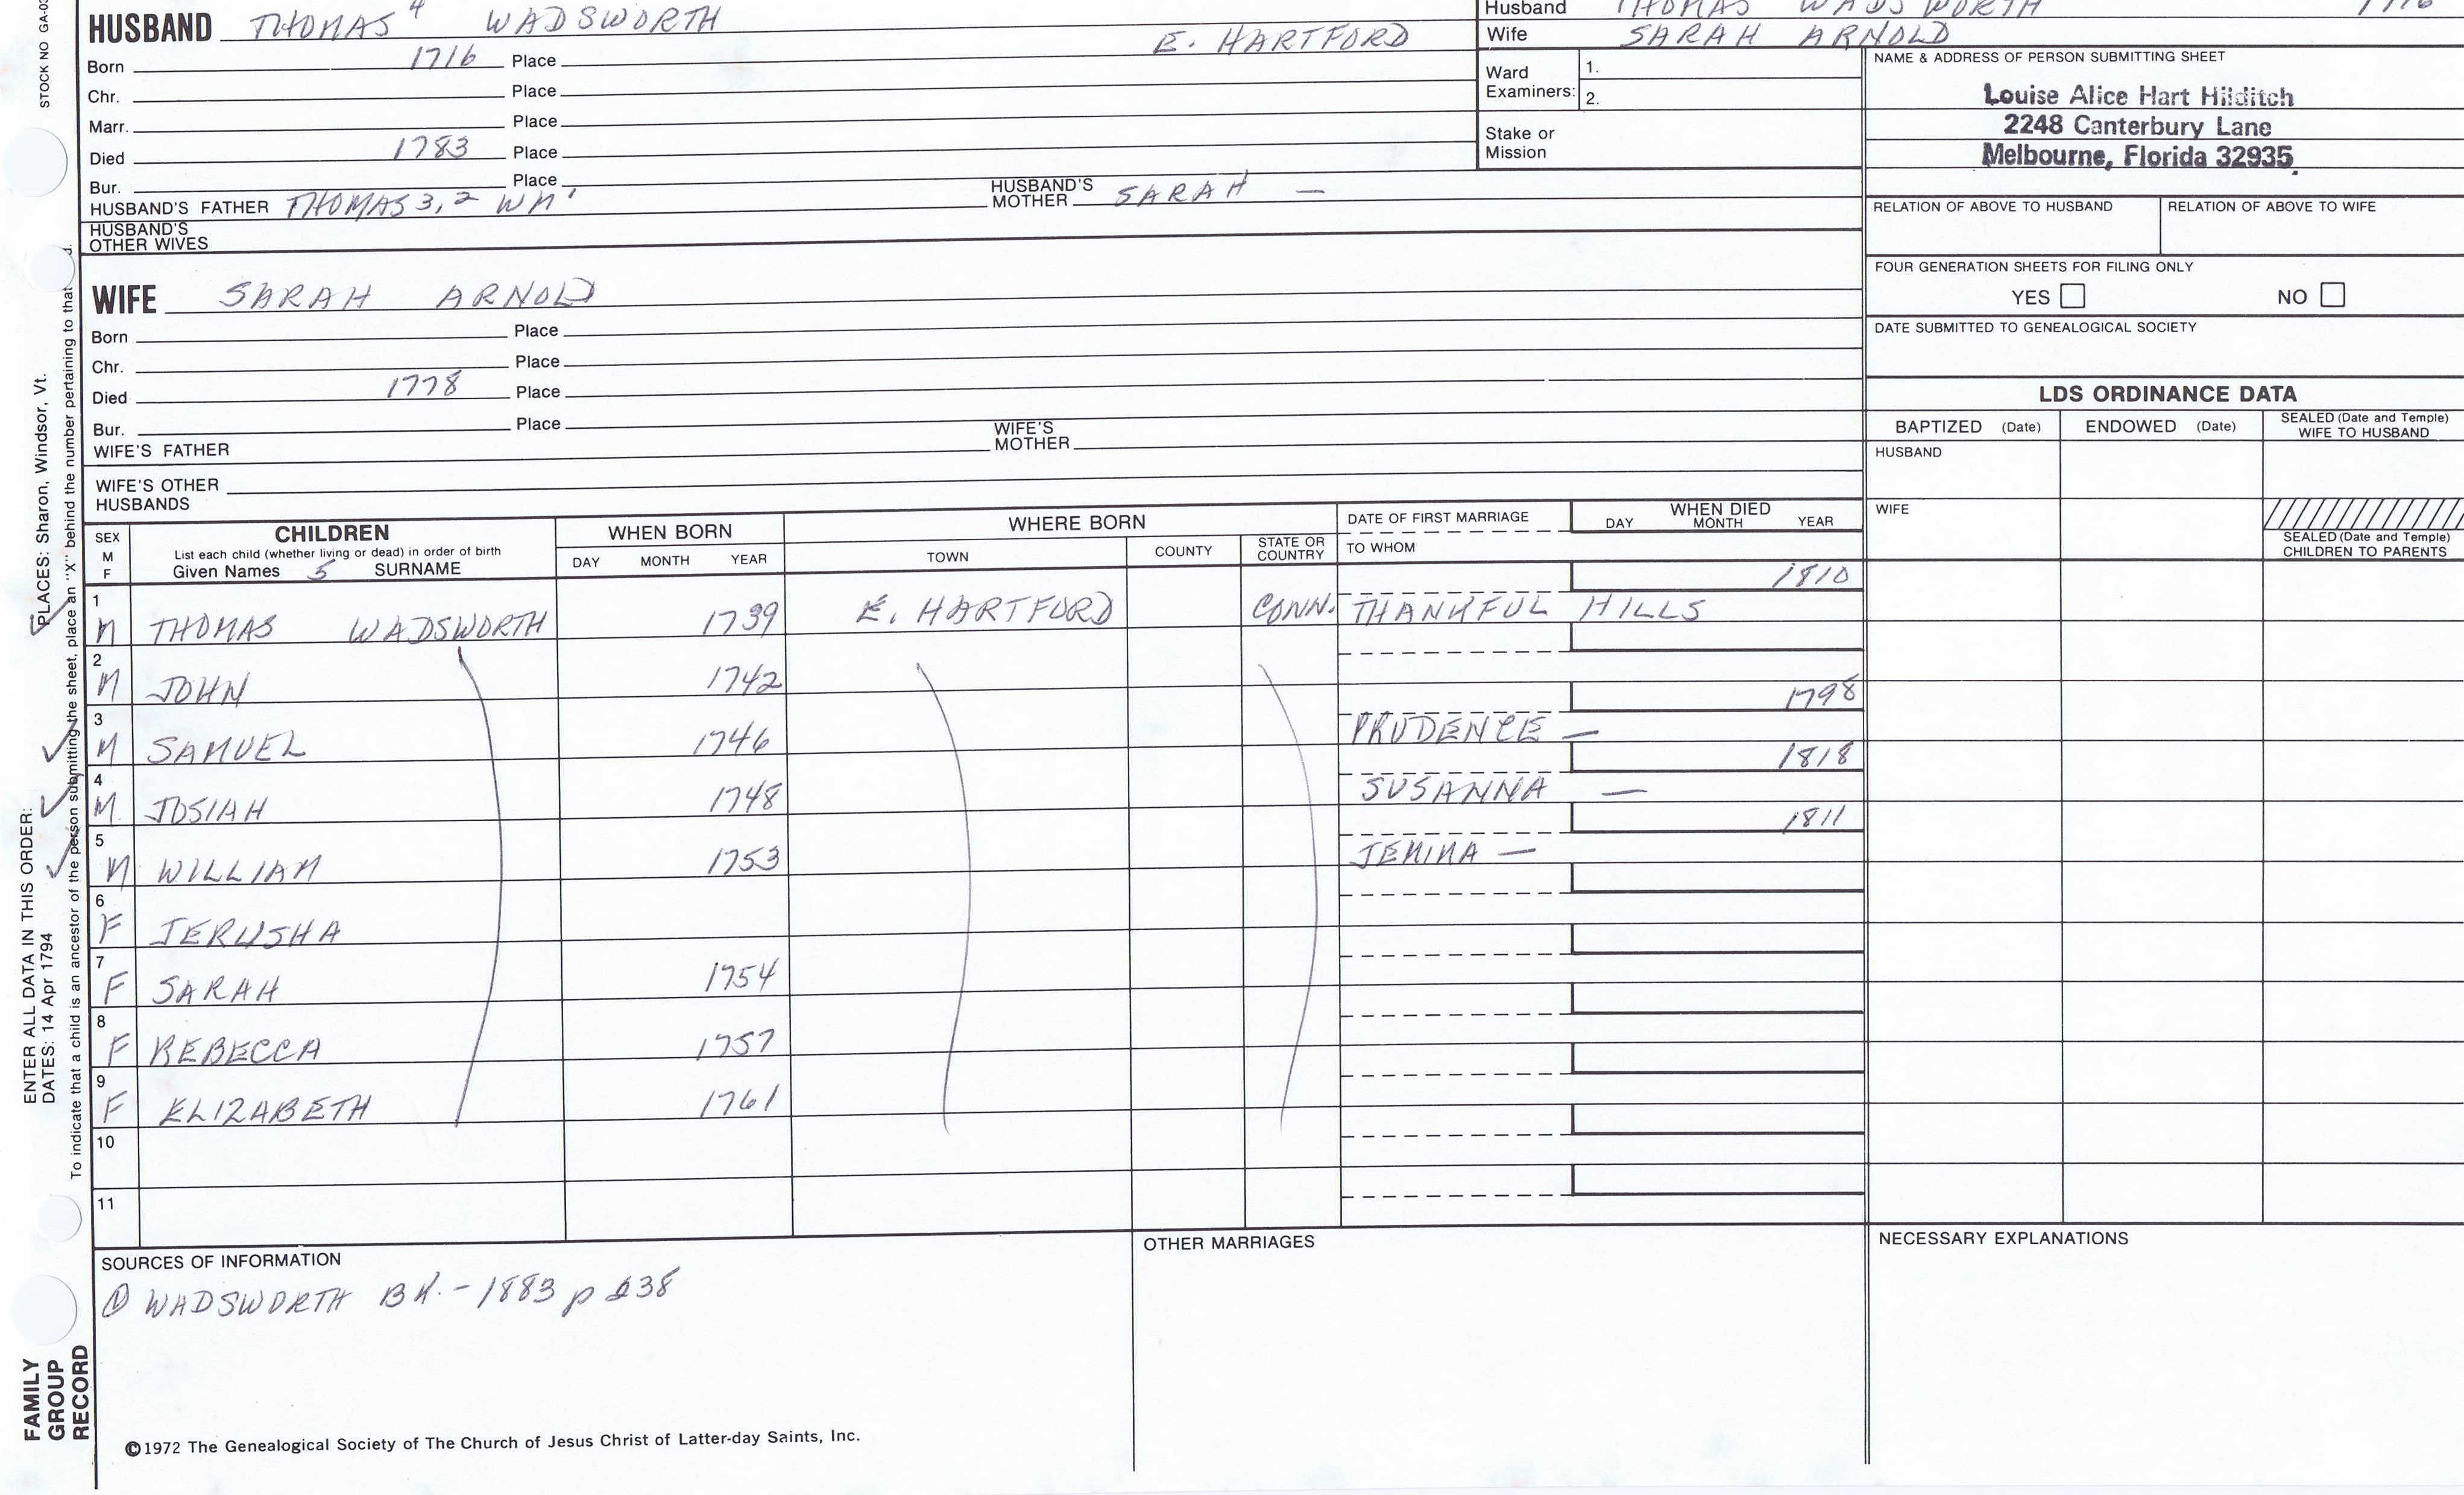 STOCK NO GA-03
HUSBAND THOMAS 4 WADSWORTH
E. HARTFORD
Born 1716 Place
Chr. Place
Marr. Place
Died 1783 Place
Bur. Place
HUSBAND'S FATHER THOMAS 3, 2 WM 1
HUSBAND'S MOTHER SARAH —
HUSBAND'S OTHER WIVES
Husband THOMAS WADSWORTH 1716
Wife SARAH ARNOLD
Ward Examiners: 1.
2.
Stake or Mission
NAME & ADDRESS OF PERSON SUBMITTING SHEET
Louise Alice Hart Hilditch
2248 Canterbury Lane
Melbourne, Florida 32935
RELATION OF ABOVE TO HUSBAND RELATION OF ABOVE TO WIFE
FOUR GENERATION SHEETS FOR FILING ONLY
YES NO
DATE SUBMITTED TO GENEALOGICAL SOCIETY
WIFE SARAH ARNOLD
Born Place
Chr. Place
Died 1778 Place
Bur. Place
WIFE'S FATHER
WIFE'S MOTHER
WIFE'S OTHER HUSBANDS
LDS ORDINANCE DATA
BAPTIZED (Date) ENDOWED (Date) SEALED (Date and Temple) WIFE TO HUSBAND
HUSBAND
WIFE
SEALED (Date and Temple) CHILDREN TO PARENTS
SEX M F
CHILDREN
List each child (whether living or dead) in order of birth
Given Names 5 SURNAME
WHEN BORN
DAY MONTH YEAR
WHERE BORN
TOWN COUNTY STATE OR COUNTRY
DATE OF FIRST MARRIAGE
TO WHOM
WHEN DIED
DAY MONTH YEAR
1 M THOMAS WADSWORTH 1739 E. HARTFORD CONN. THANKFUL HILLS 1810
2 M JOHN 1742
3 M SAMUEL 1746 PRUDENCE — 1798
4 M JOSIAH 1748 SUSANNA — 1818
5 M WILLIAM 1753 JEMIMA — 1811
6 F JERUSHA
7 F SARAH 1754
8 F REBECCA 1757
9 F ELIZABETH 1761
10
11
SOURCES OF INFORMATION
① WADSWORTH BK. - 1883 p 238
OTHER MARRIAGES
NECESSARY EXPLANATIONS
©1972 The Genealogical Society of The Church of Jesus Christ of Latter-day Saints, Inc.
FAMILY GROUP RECORD
ENTER ALL DATA IN THIS ORDER:
DATES: 14 Apr 1794
PLACES: Sharon, Windsor, Vt.
To indicate that a child is an ancestor of the person submitting the sheet, place an "X" behind the number pertaining to that